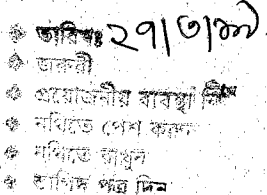 তারিখঃ ২৭/৩/
জরুরী
প্রয়োজনীয় ব্যবস্থা নিন
নথিতে পেশ করুন
নথিতে রাখুন
তাগিদ পত্র দিন